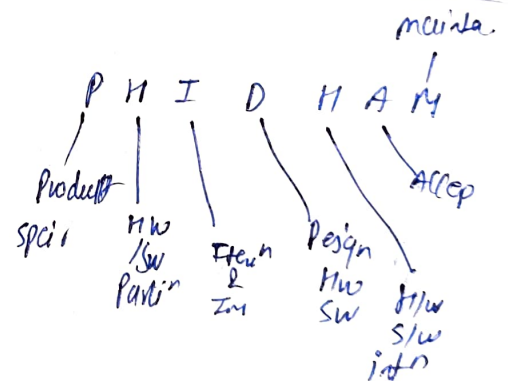 mainta
P H I D H A M
Product
Spci
HW
/SW
Partiⁿ
Iteraⁿ
&
Im
Design
HW
SW
Accep
H/W
S/W
intⁿ